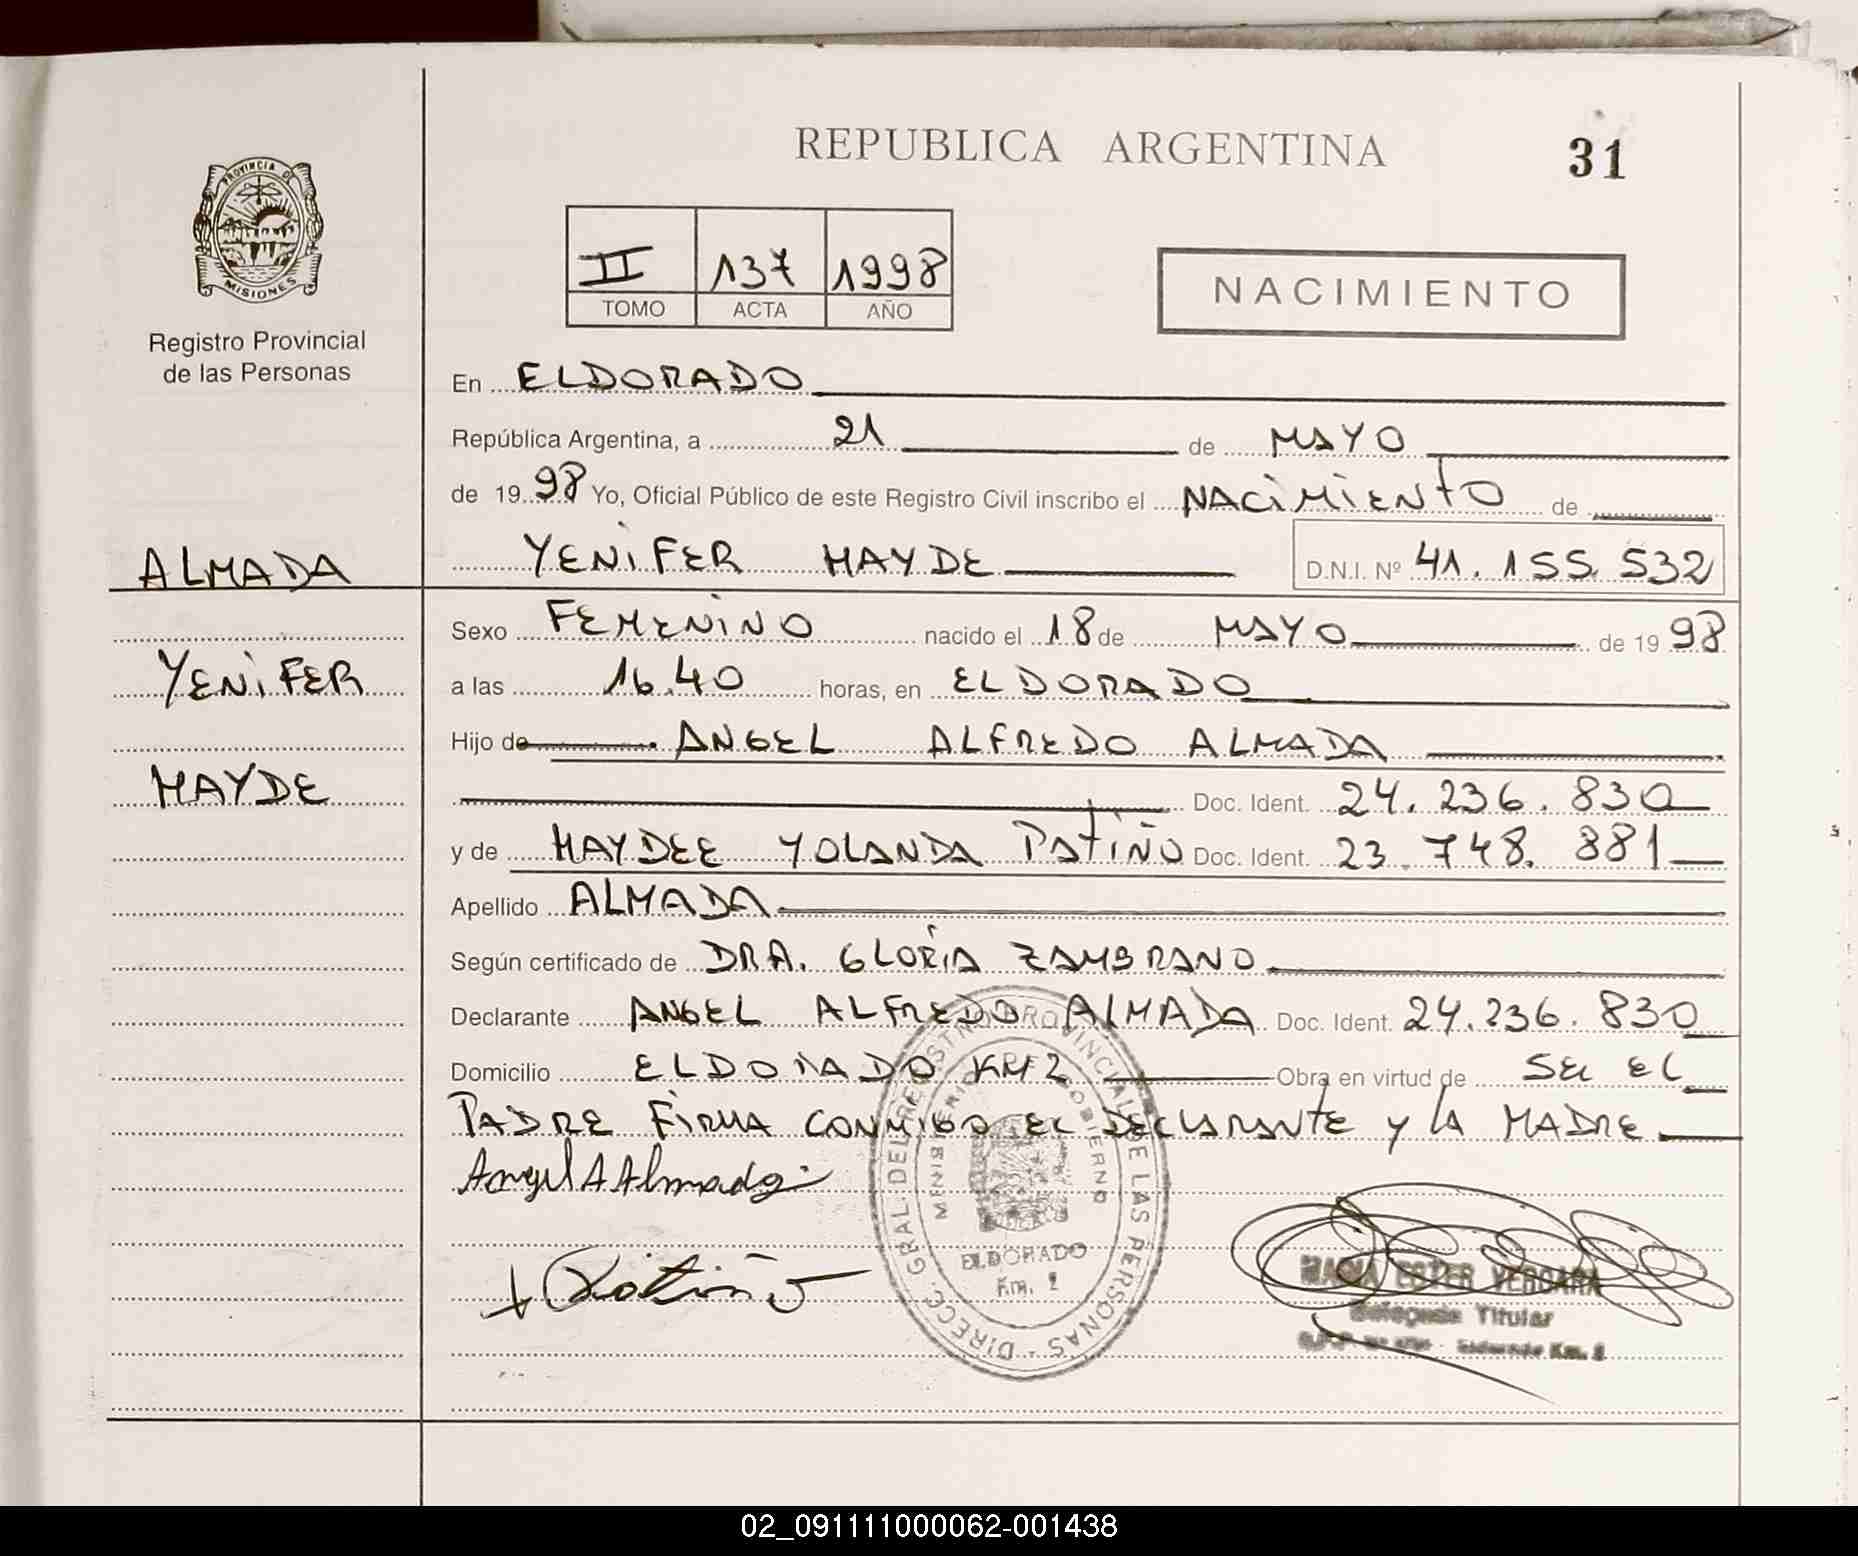 REPUBLICA ARGENTINA
31
PROVINCIA DE
MISIONES
Registro Provincial
de las Personas
II 137 1998
TOMO ACTA AÑO
NACIMIENTO
En ELDORADO
República Argentina, a 21 de MAYO
de 1998 Yo, Oficial Público de este Registro Civil inscribo el NACIMIENTO de
YENIFER HAYDE D.N.I. Nº 41.155.532
ALMADA
YENIFER
HAYDE
Sexo FEMENINO nacido el 18 de MAYO de 1998
a las 16.40 horas, en ELDORADO
Hijo de ANGEL ALFREDO ALMADA
Doc. Ident. 24.236.830
y de HAYDEE YOLANDA PATIÑO Doc. Ident. 23.748.881
Apellido ALMADA
Según certificado de DRA. GLORIA ZAMBRANO
Declarante ANGEL ALFREDO ALMADA Doc. Ident. 24.236.830
Domicilio ELDORADO KM 2 Obra en virtud de SER EL
PADRE FIRMA CONMIGO EL DECLARANTE Y LA MADRE
Angel A Almada
Patiño
DIRECC. GRAL. DEL REGISTRO PROVINCIAL DE LAS PERSONAS
MINISTERIO DE GOBIERNO
ELDORADO
Km. 2
MARIA ESTER VERGARA
Delegada Titular
Eldorado Km. 2
02_091111000062-001438